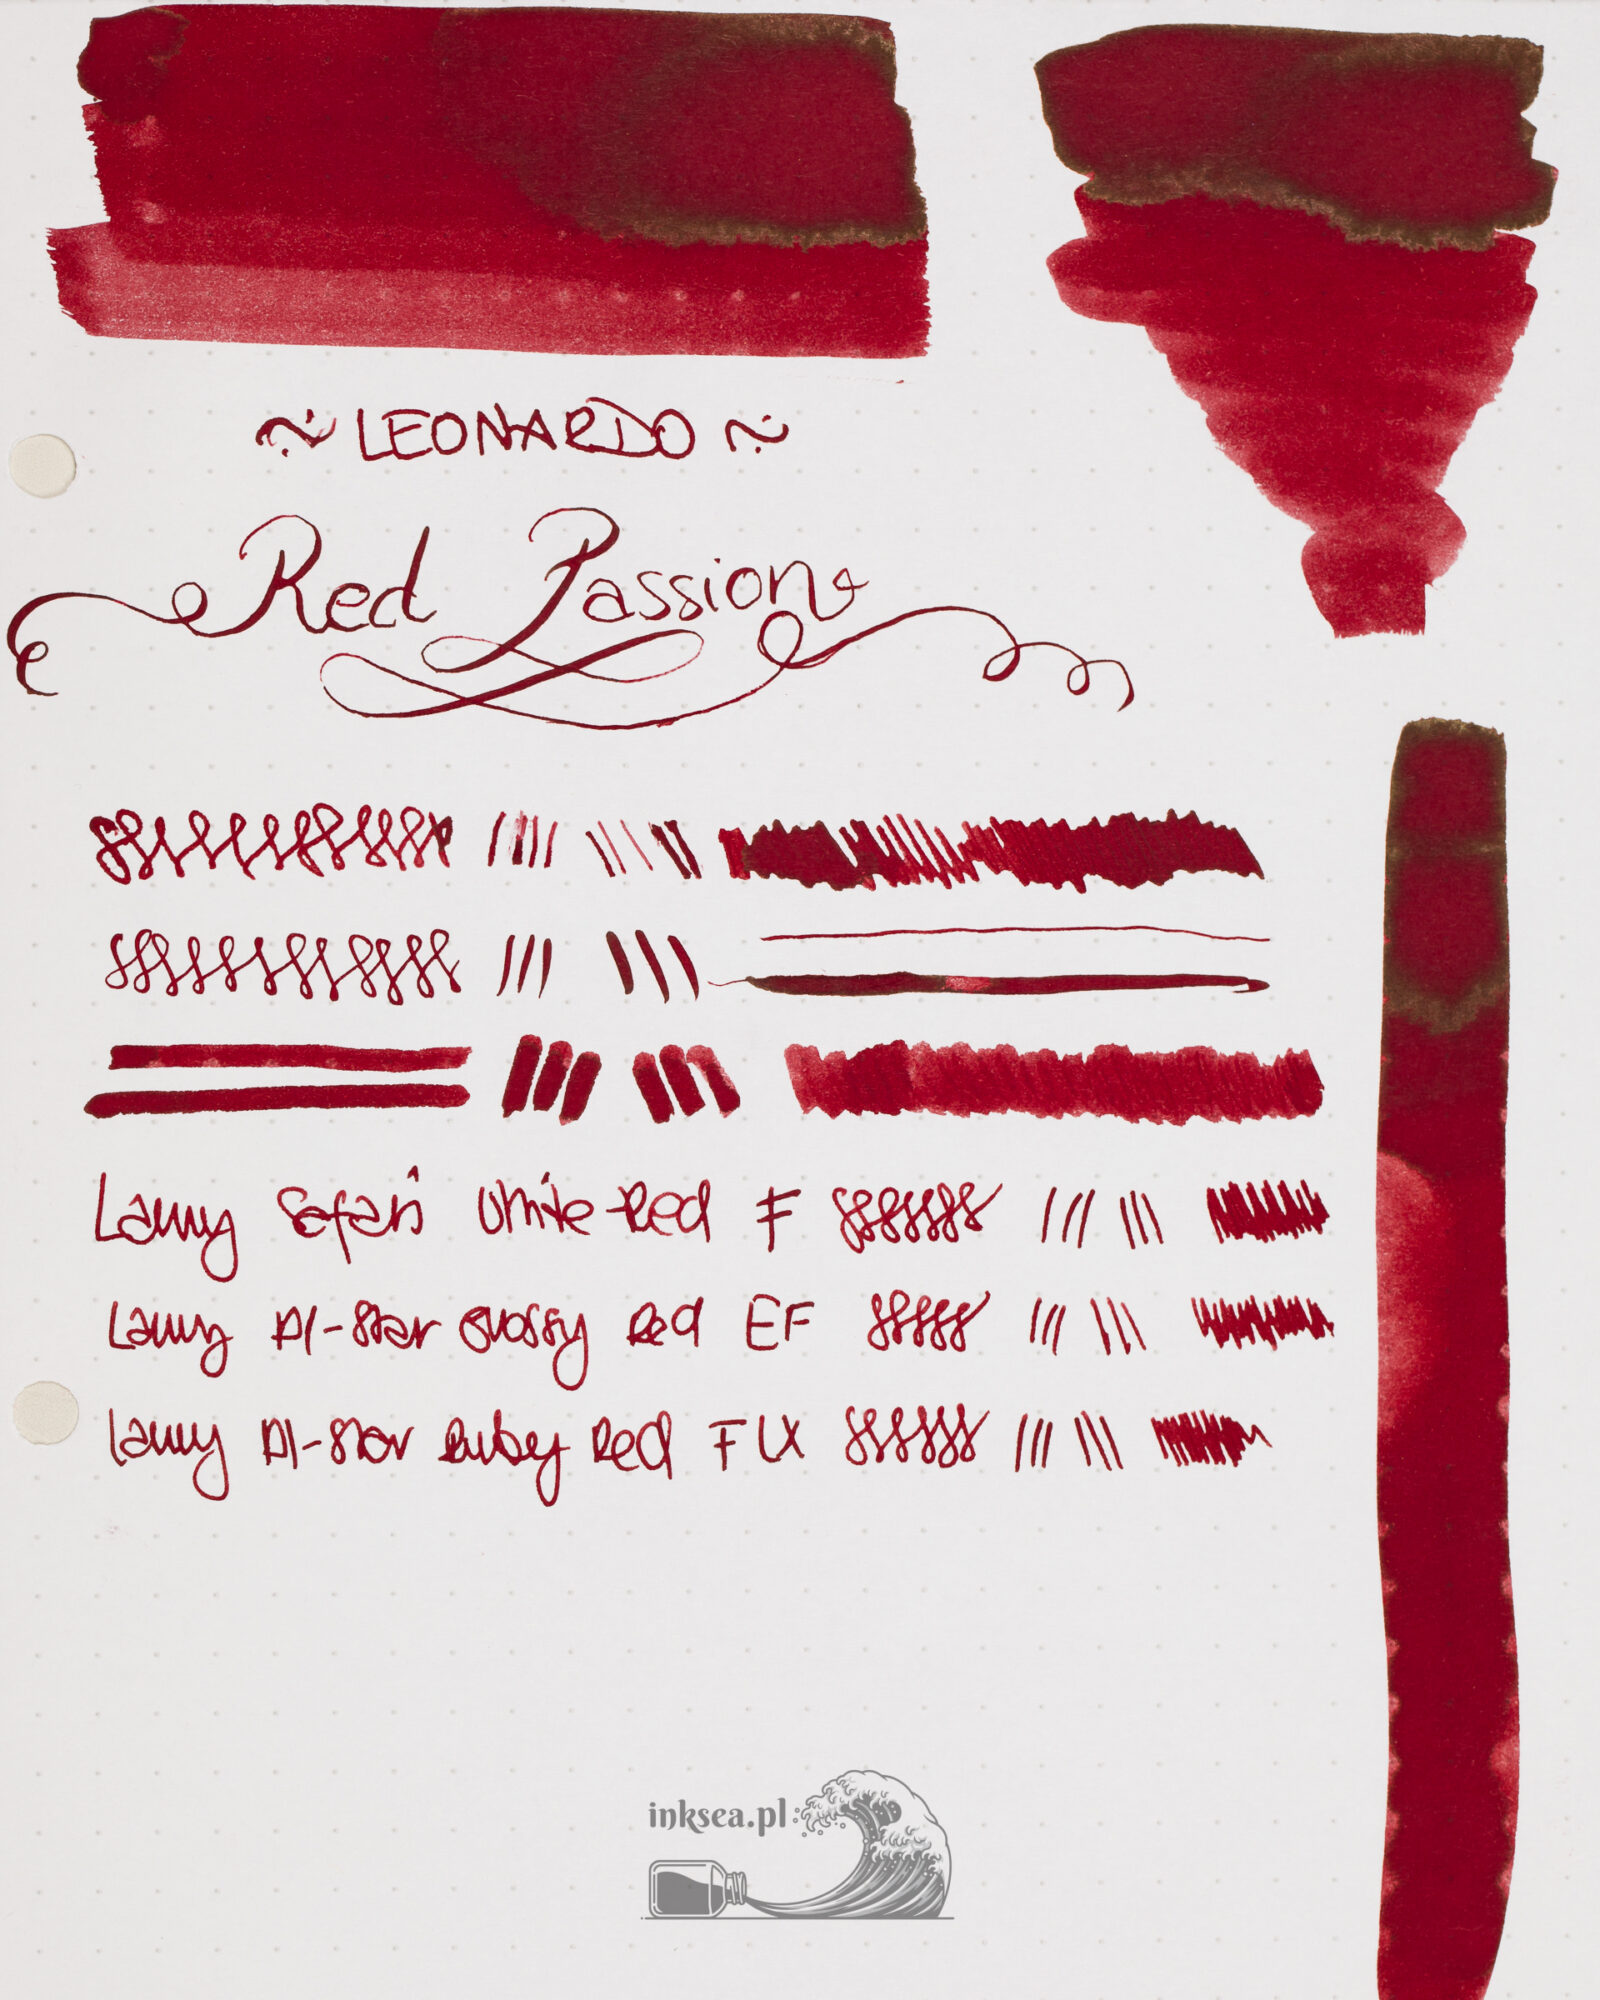 ~ LEONARDO ~
Red Passion
Lamy Safari White Red F
Lamy Al-Star Glossy Red EF
Lamy Al-Star Ruby Red F LX
inksea.pl